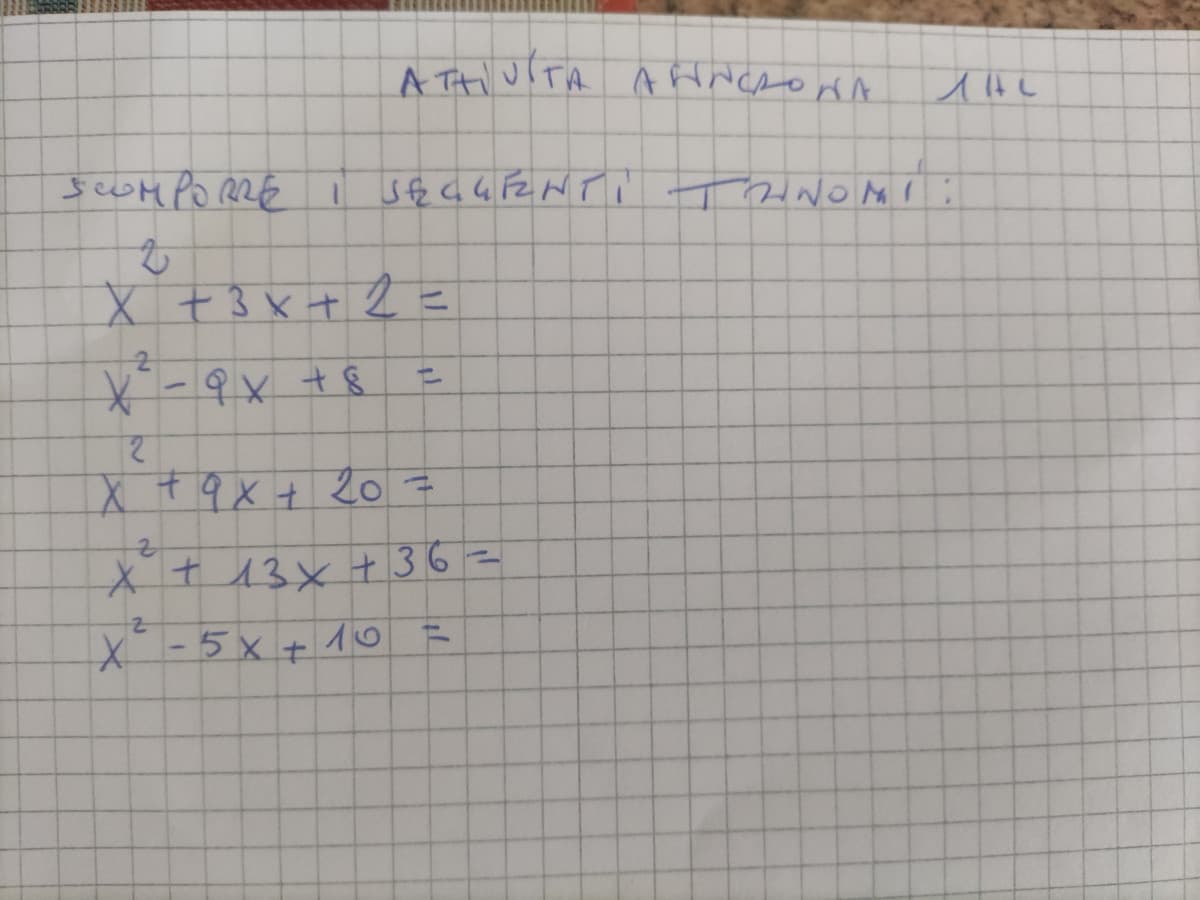 ATTIVITA ASINCRONA 1HC
SCOMPORRE I SEGUENTI TRINOMI:
x² + 3x + 2 =
x² - 9x + 8 =
x² + 9x + 20 =
x² + 13x + 36 =
x² - 5x + 10 =